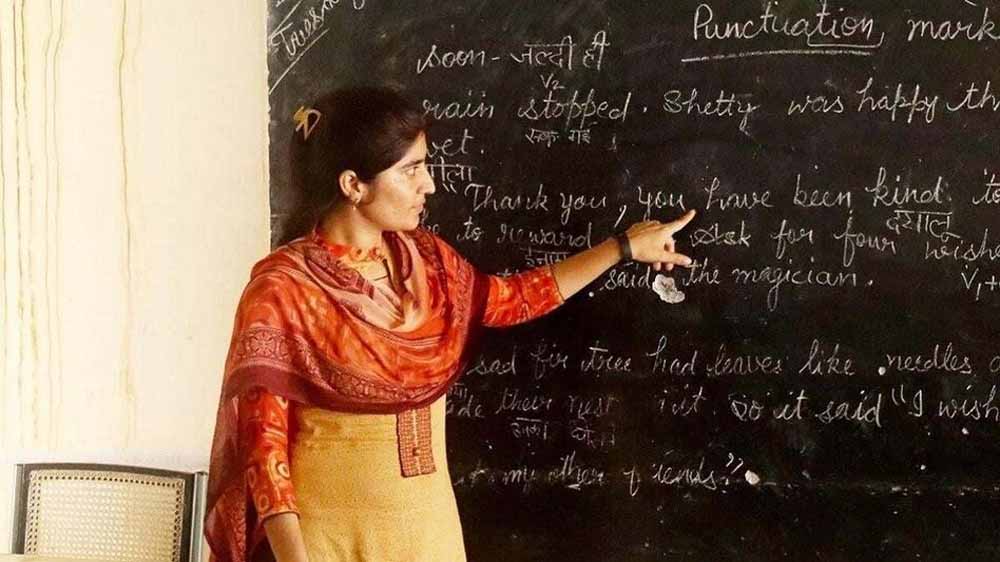 Punctuation mark
soon - जल्दी ही
V2
rain stopped. Shetty was happy th
रुक गई
wet.
"Thank you, you have been kind to
दयालु
to reward Ask for four wishe
ईनाम
said the magician. V1+
sad fir tree had leaves like needles
their nest in it. So it said "I wish
इनका
my other friends?"